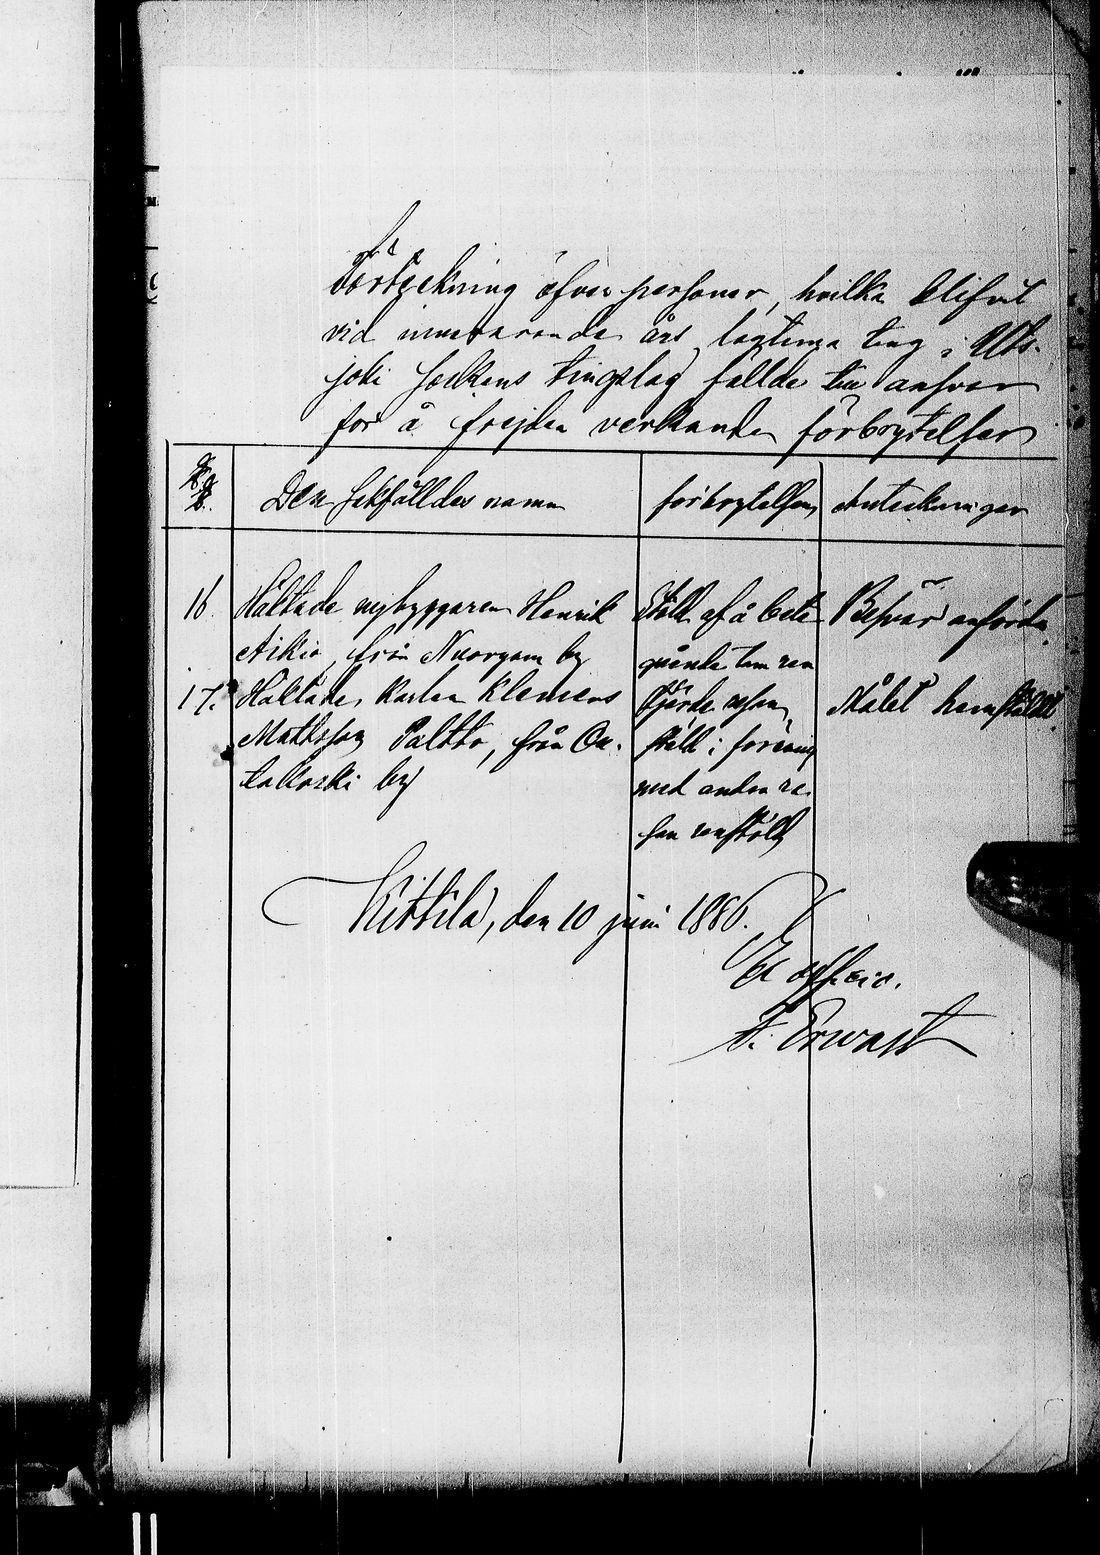 Förteckning öfver personer, hvilka blifvit
vid innevarande års lagtima ting i Uts-
joki sockens tingslag fällde till ansvar
för å frejden verkande förbrytelser
Den sakfälldes namn
förbrytelsen
Anteckningar
16. Häktade nybyggaren Henrik
Aikio, från Nuorgam by
Stöld af å bete
gående tam ren
Besvär anförda
17. Häktade karlen Klemens
Mattsson Paltto, från Ou-
takoski by
Fjerde resan
stöld i förening
med andra re-
san renstöld
Målet hemstäldt
Kittilä, den 10 juni 1886.
Ex officio.
F. Erwast